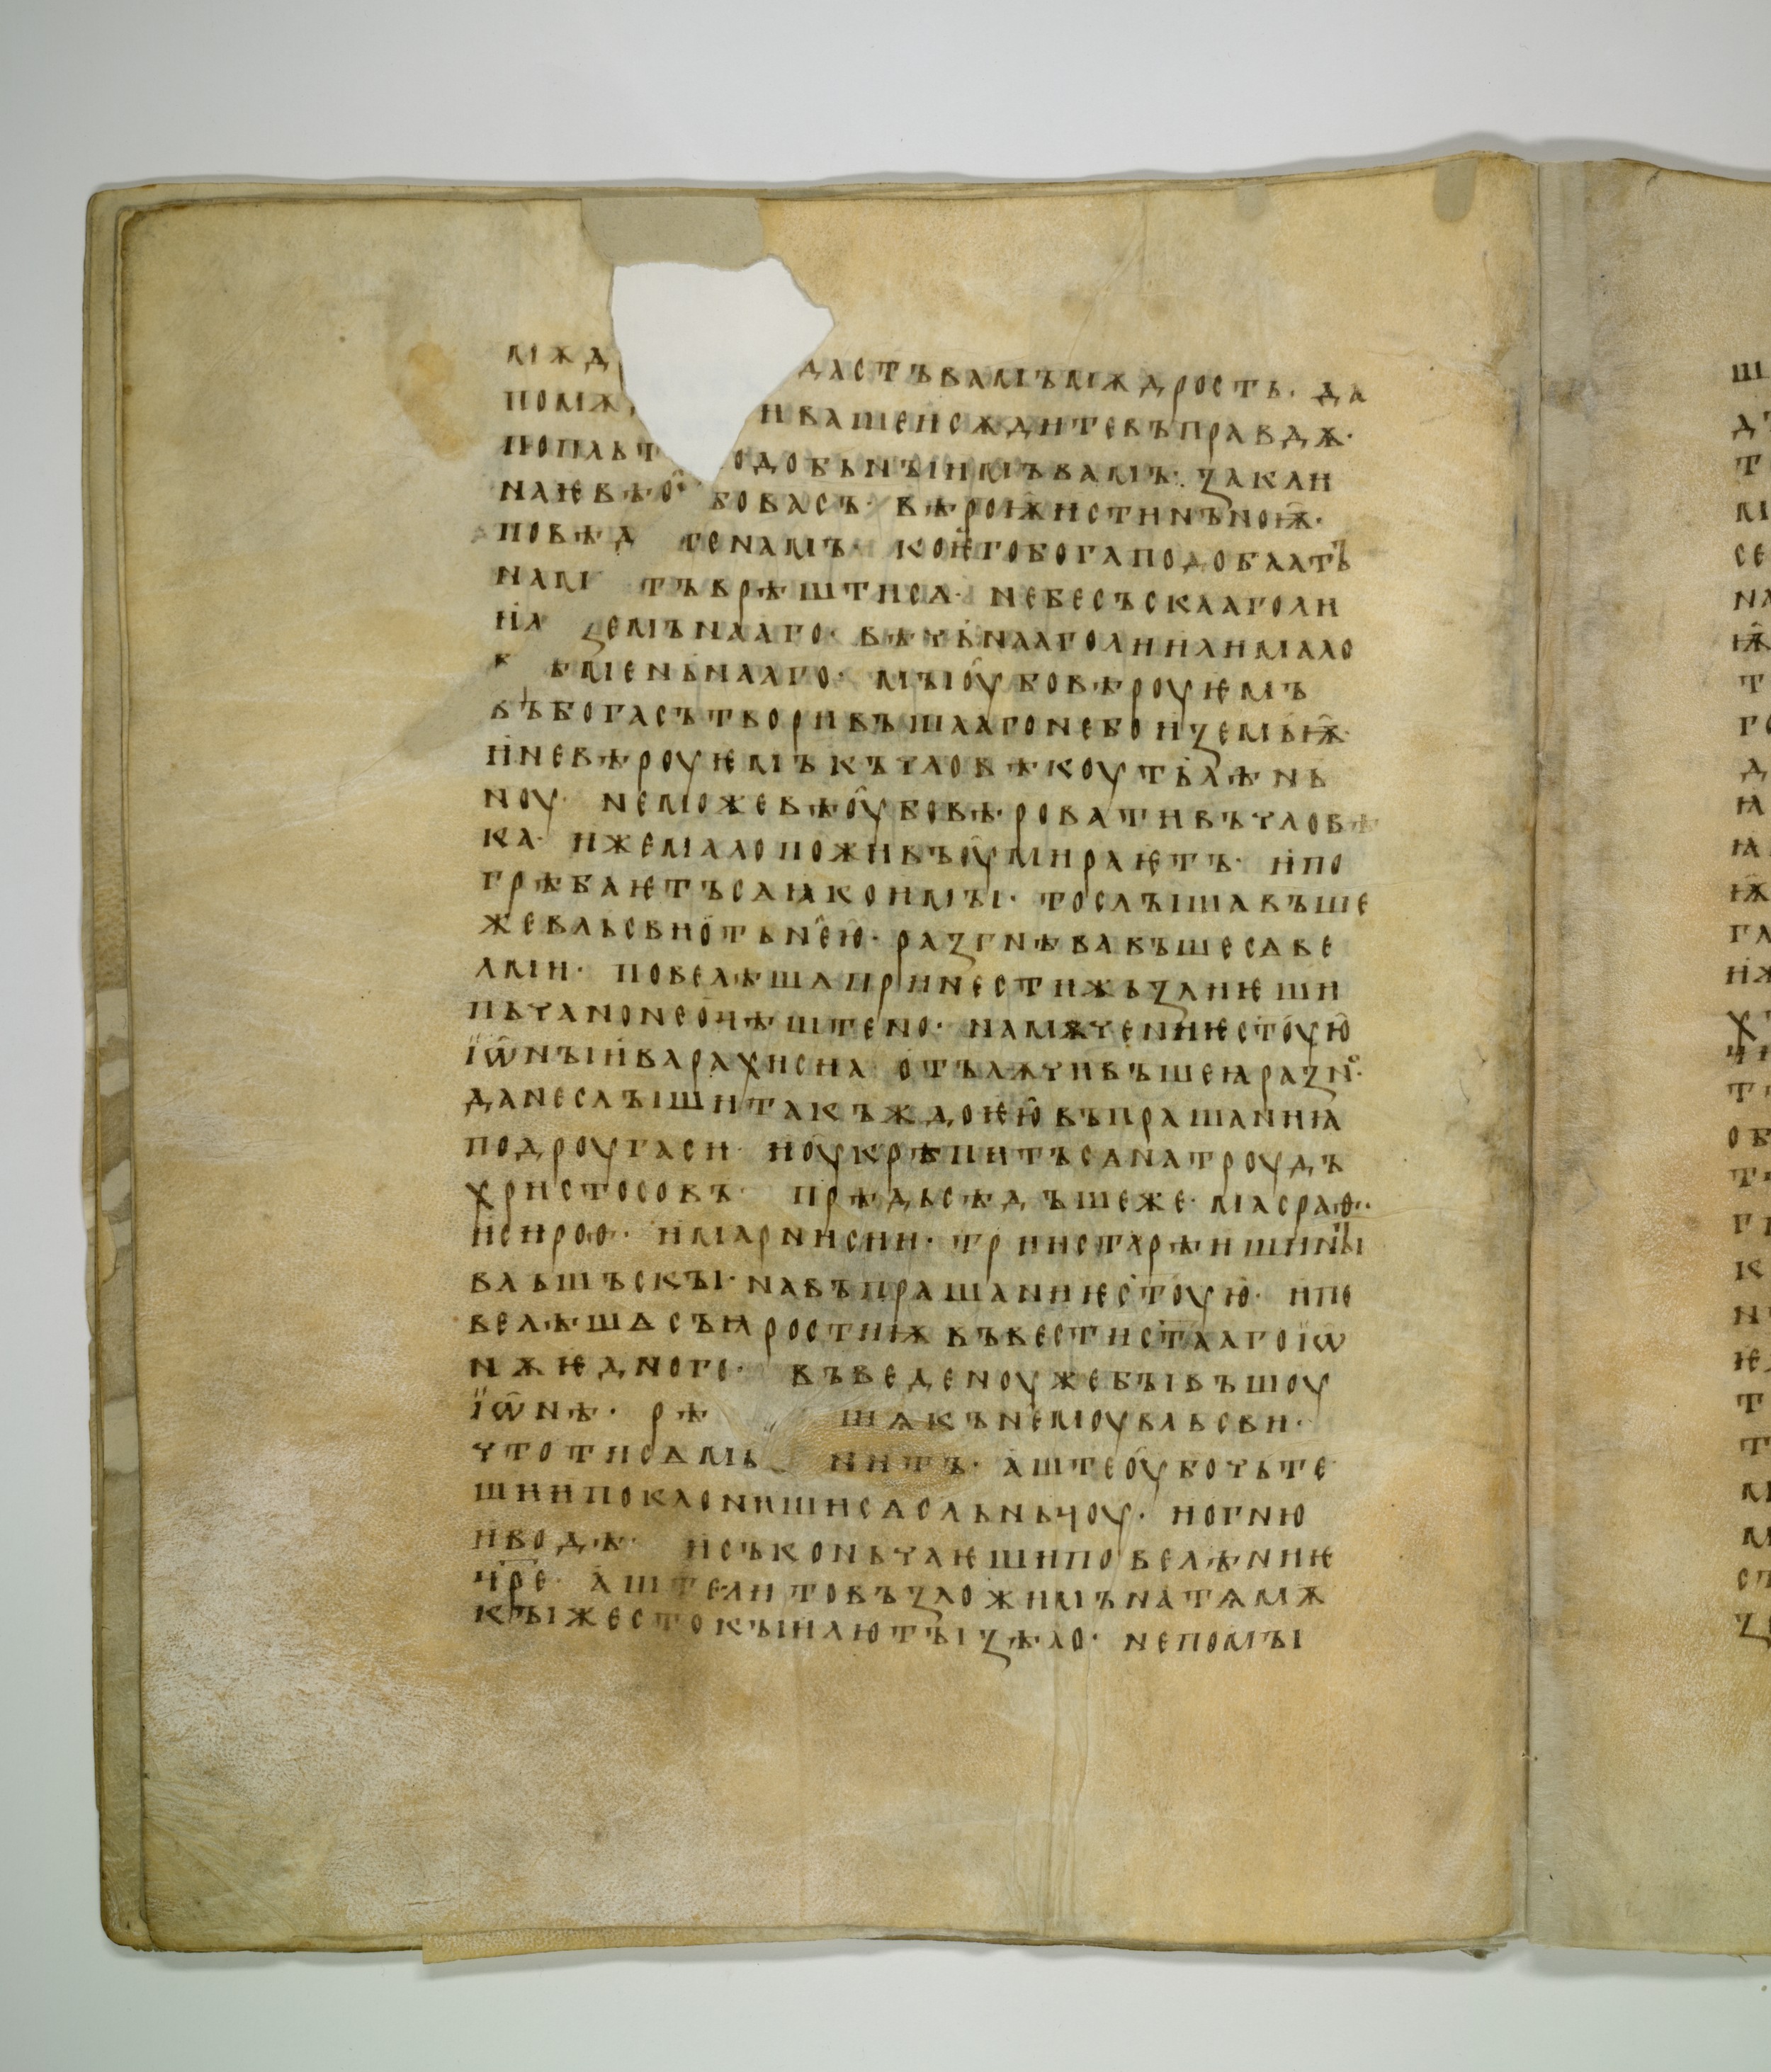 мѫд дастъвамъмѫдрость· да
помѫ ивашеисѫдитевъправдѫ·
июпльт одобьнъінмъвамъ· ꙁаклн
наѥвѣо҅ бовасъ· вѣроѭистинъноѭ·
повѣд тенамъ· коѥгобогаподобаатъ
нам тъврѣштисѧ· небесъскааголи
на ꙁемъноааго· вѣчьнааголиилимало
в ѣменьнааго· мъіоубовѣроуѥмъ
въбогасътворивъшаагонебоиꙁемьѭ·
иневѣроуѥмъкъчловѣкоутьлѣнь
ноу· неможевѣоубовѣровативъчловѣ
ка· ижемалопоживъоумираѥтъ· ипо
грѣбаѥтъсѧꙗкоимъі· тослъішавъше
жевльсвиотьнею· раꙁгнѣвавъшесѧве
льми· повелѣшѧпринестижьꙁлиѥши
пьчанонеоцѣштено· намѫчениѥстоую
їѡнъіиварахисиꙗ отълѫчивъшеꙗраꙁно·
данеслъішитакъждоѥювъпрашаниꙗ
подроугаси· ноукрѣпитъсѧнатроудъ
христосовъ· прѣдьсѣдъшеже· масраѳ·
исироѳ· имарнисии· триистарѣишинъі
вльшъскъі· навъпрашаниѥстоую· ипо
велѣшѧсъꙗростиѭвъвестистааго їѡ
нѫѥдного· въведеноужебъівъшоу
їѡнѣ· рѣ шѧкънемоувльсви·
чтотисѧмь нитъ· аштеоубочьте
шиипоклонишисѧсльньцоу· иогню
иводѣ· исъконьчаѥшиповелѣниѥ
цр҃е· аштелитовъꙁложимънатѧмѫ
къіжестокъіилютъіꙁѣло· непомъі